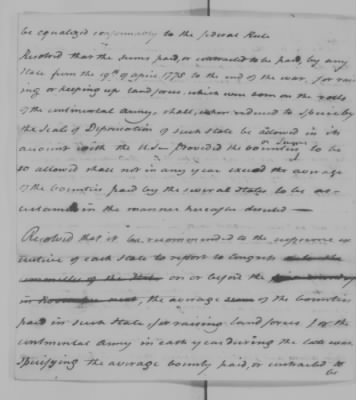 be equalized conformably to the federal Rule
Resolved that the sums paid, or contracted to be paid, by any
State from the 19th of april 1775 to the end of the war, for rais
ing or keeping up land forces, which were born on the rolls
of the continental Army, shall, when reduced to specie by
the Scale of Depreciation of such State be allowed in its
account with the US — Provided the bounties or sums to be
so allowed shall not in any year exceed the average
of the bounties paid by the several States to be as-
certained in the manner hereafter directed —
Resolved that it be recommended to the supreme ex
ecutive of each State to report to Congress
on or before the
in November next, the average sum of the bounties
paid in such State for raising land forces for the
continental Army in each year during the late war,
Specifying the average bounty paid, or contracted to
be